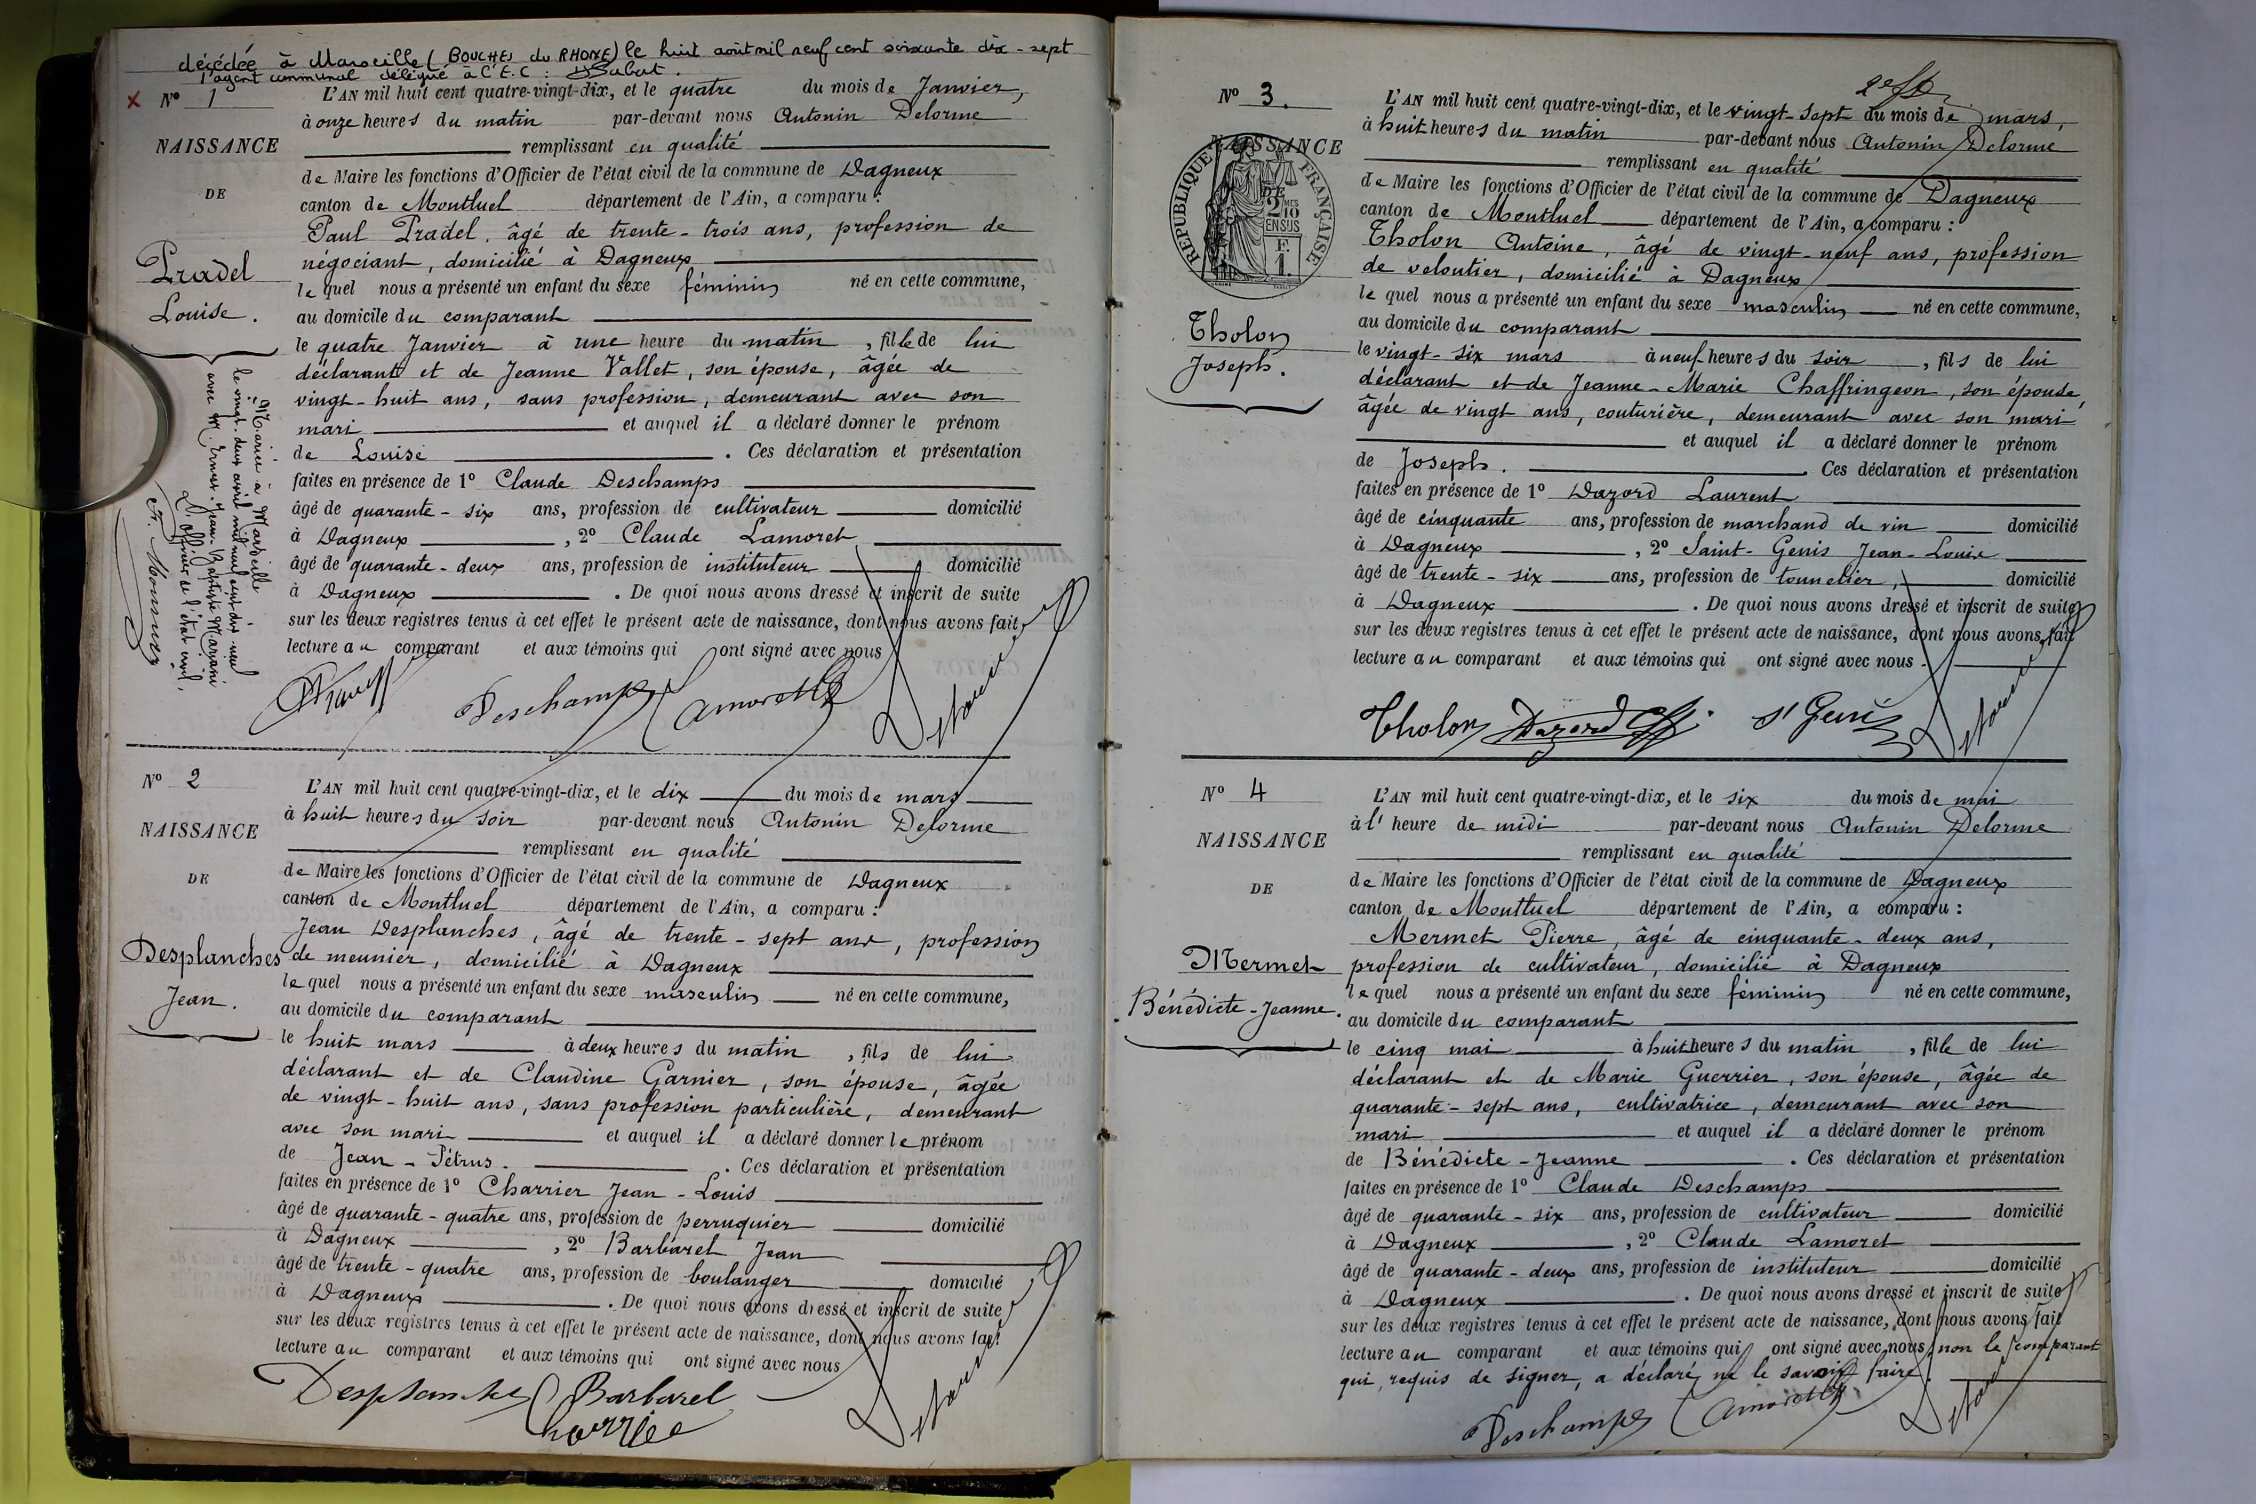 décédée à Marseille (BOUCHES du RHONE) le huit août mil neuf cent soixante dix-sept
l'agent communal délégué à l'E.C :
N° 1
L'AN mil huit cent quatre-vingt-dix, et le quatre du mois de Janvier,
à onze heures du matin par-devant nous Antonin Delorme
NAISSANCE
remplissant en qualité
de Maire les fonctions d'Officier de l'état civil de la commune de Dagneux
DE
canton de Montluel département de l'Ain, a comparu :
Paul Pradel, âgé de trente-trois ans, profession de
Pradel
négociant, domicilié à Dagneux
Louise.
lequel nous a présenté un enfant du sexe féminin né en cette commune,
au domicile du comparant
le quatre Janvier à une heure du matin, fille de lui
déclarant et de Jeanne Vallet, son épouse, âgée de
vingt-huit ans, sans profession, demeurant avec son
mari et auquel il a déclaré donner le prénom
de Louise. Ces déclaration et présentation
faites en présence de 1° Claude Deschamps
âgé de quarante-six ans, profession de cultivateur domicilié
à Dagneux, 2° Claude Lamoret
âgé de quarante-deux ans, profession de instituteur domicilié
à Dagneux. De quoi nous avons dressé et inscrit de suite
sur les deux registres tenus à cet effet le présent acte de naissance, dont nous avons fait
lecture au comparant et aux témoins qui ont signé avec nous
Mariée à Marseille
le vingt-deux avril mil neuf cent dix-neuf
avec M. Ernest-Jean-Baptiste Mariani
L'officier de l'état civil,
Deschamps Lamorette Delorme
N° 2
L'AN mil huit cent quatre-vingt-dix, et le dix du mois de mars
à huit heures du soir par-devant nous Antonin Delorme
NAISSANCE
remplissant en qualité
de Maire les fonctions d'Officier de l'état civil de la commune de Dagneux
DE
canton de Montluel département de l'Ain, a comparu :
Jean Desplanches, âgé de trente-sept ans, profession
Desplanches
de meunier, domicilié à Dagneux
Jean.
lequel nous a présenté un enfant du sexe masculin né en cette commune,
au domicile du comparant
le huit mars à deux heures du matin, fils de lui
déclarant et de Claudine Garnier, son épouse, âgée
de vingt-huit ans, sans profession particulière, demeurant
avec son mari et auquel il a déclaré donner le prénom
de Jean-Pétrus. Ces déclaration et présentation
faites en présence de 1° Charrier Jean-Louis
âgé de quarante-quatre ans, profession de perruquier domicilié
à Dagneux, 2° Barbaret Jean
âgé de trente-quatre ans, profession de boulanger domicilié
à Dagneux. De quoi nous avons dressé et inscrit de suite
sur les deux registres tenus à cet effet le présent acte de naissance, dont nous avons fait
lecture au comparant et aux témoins qui ont signé avec nous
Desplanches Barbaret Delorme
Charrier
N° 3.
L'AN mil huit cent quatre-vingt-dix, et le vingt-sept du mois de mars,
à huit heures du matin par-devant nous Antonin Delorme
NAISSANCE
remplissant en qualité
RÉPUBLIQUE FRANÇAISE
DE
2 MES
10
EN SUS
F.
1.
de Maire les fonctions d'Officier de l'état civil de la commune de Dagneux
canton de Montluel département de l'Ain, a comparu :
Tholon Antoine, âgé de vingt-neuf ans, profession
de veloutier, domicilié à Dagneux
lequel nous a présenté un enfant du sexe masculin né en cette commune,
Tholon
au domicile du comparant
Joseph.
le vingt-six mars à neuf heures du soir, fils de lui
déclarant et de Jeanne-Marie Chaffringeon, son épouse,
âgée de vingt ans, couturière, demeurant avec son mari
et auquel il a déclaré donner le prénom
de Joseph. Ces déclaration et présentation
faites en présence de 1° Dazord Laurent
âgé de cinquante ans, profession de marchand de vin domicilié
à Dagneux, 2° Saint-Genis Jean-Louis
âgé de trente-six ans, profession de tonnelier, domicilié
à Dagneux. De quoi nous avons dressé et inscrit de suite
sur les deux registres tenus à cet effet le présent acte de naissance, dont nous avons fait
lecture au comparant et aux témoins qui ont signé avec nous.
Tholon Dazord St Genis Delorme
N° 4
L'AN mil huit cent quatre-vingt-dix, et le six du mois de mai
à l'heure de midi par-devant nous Antonin Delorme
NAISSANCE
remplissant en qualité
de Maire les fonctions d'Officier de l'état civil de la commune de Dagneux
DE
canton de Montluel département de l'Ain, a comparu :
Mermet Pierre, âgé de cinquante-deux ans,
Mermet
profession de cultivateur, domicilié à Dagneux
lequel nous a présenté un enfant du sexe féminin né en cette commune,
Bénédicte-Jeanne.
au domicile du comparant
le cinq mai à huit heures du matin, fille de lui
déclarant et de Marie Guerrier, son épouse, âgée de
quarante-sept ans, cultivatrice, demeurant avec son
mari et auquel il a déclaré donner le prénom
de Bénédicte-Jeanne. Ces déclaration et présentation
faites en présence de 1° Claude Deschamps
âgé de quarante-six ans, profession de cultivateur domicilié
à Dagneux, 2° Claude Lamoret
âgé de quarante-deux ans, profession de instituteur domicilié
à Dagneux. De quoi nous avons dressé et inscrit de suite
sur les deux registres tenus à cet effet le présent acte de naissance, dont nous avons fait
lecture au comparant et aux témoins qui ont signé avec nous, non le comparant
qui, requis de signer, a déclaré ne le savoir faire.
Deschamps Lamorette Delorme